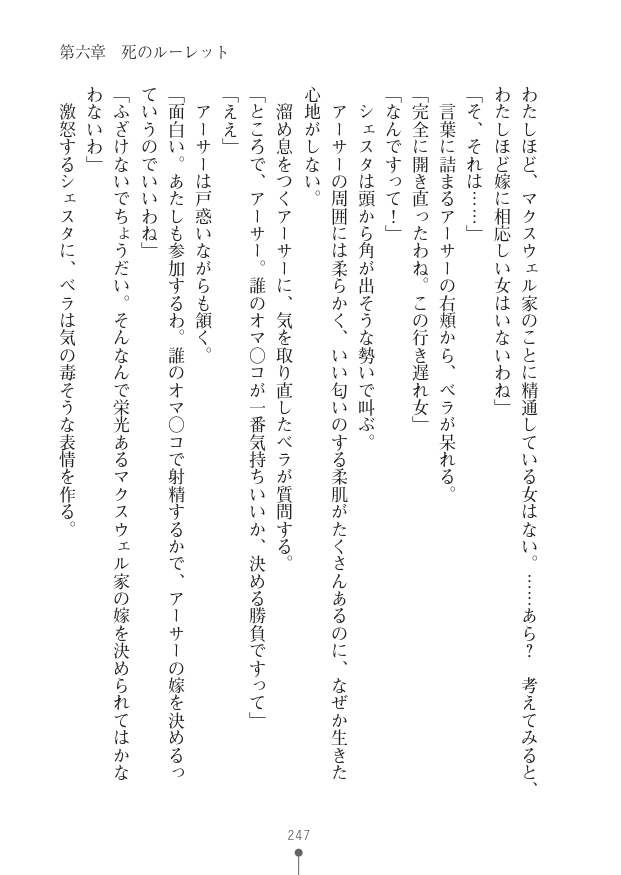 第六章　死のルーレット
わたしほど、マクスウェル家のことに精通している女はない。……あら？　考えてみると、
わたしほど嫁に相応しい女はいないわね」
「そ、それは……」
言葉に詰まるアーサーの右頰から、ベラが呆れる。
「完全に開き直ったわね。この行き遅れ女」
「なんですって！」
シェスタは頭から角が出そうな勢いで叫ぶ。
アーサーの周囲には柔らかく、いい匂いのする柔肌がたくさんあるのに、なぜか生きた
心地がしない。
溜め息をつくアーサーに、気を取り直したベラが質問する。
「ところで、アーサー。誰のオマ〇コが一番気持ちいいか、決める勝負ですって」
「ええ」
アーサーは戸惑いながらも頷く。
「面白い。あたしも参加するわ。誰のオマ〇コで射精するかで、アーサーの嫁を決めるっ
ていうのでいいわね」
「ふざけないでちょうだい。そんなんで栄光あるマクスウェル家の嫁を決められてはかな
わないわ」
激怒するシェスタに、ベラは気の毒そうな表情を作る。
247